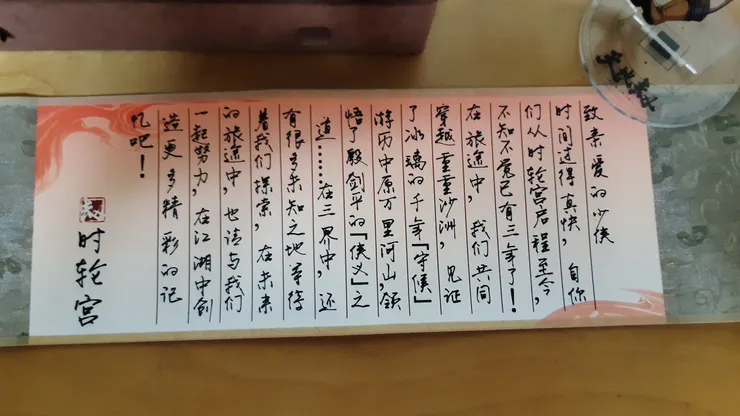 致亲爱的少侠
时间过得真快，自你
们从时轮宫启程至今，
不知不觉已有三年了！
在旅途中，我们共同
穿越重重沙洲，见证
了冰璃的千年『守候』
游历中原万里河山，领
悟了殷剑平的『侠义』之
道……在三界中，还
有很多未知之地等待
着我们探索，在未来
的旅途中，也请与我们
一起努力，在江湖中创
造更多精彩的记
忆吧！
时轮宫